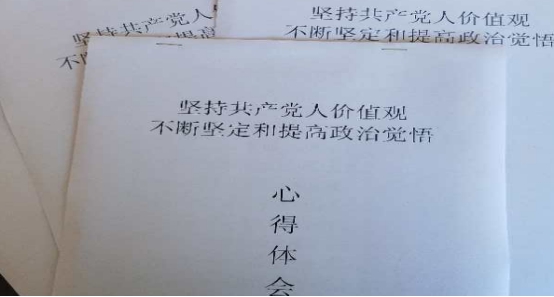 坚持共产党人
不
提高
坚持共产党人价值观
不断坚定和提高政治觉悟
坚持共产党人价值观
不断坚定和提高政治觉悟
心
得
体
会